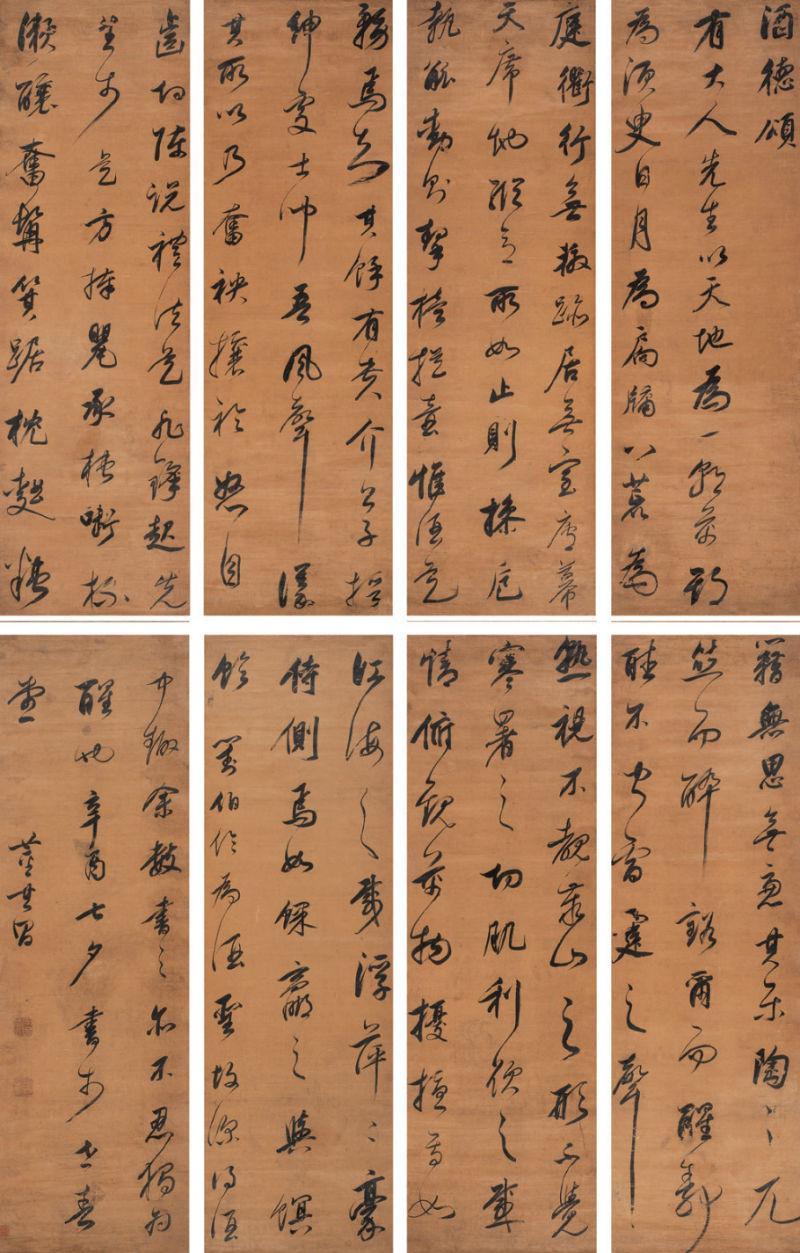 酒德頌
有大人先生以天地為一朝萬期
為須臾日月為扃牖八荒為
庭衢行無轍跡居無室廬幕
天席地縱意所如止則操卮
執觚動則挈榼提壺惟酒是
務焉知其餘有貴介公子搢
紳處士聞吾風聲議
其所以乃奮袂攘衿怒目
齒切陳說禮法是非鋒起先
生於是方捧甖承槽啣杯
漱醪奮髯箕踞枕麴糟
藉無思無慮其樂陶〻兀
然而醉豁爾而醒靜
聽不聞雷霆之聲
熟視不覩泰山之形不覺
寒暑之切肌利欲之感
情俯觀萬物擾擾焉如
江海之載浮萍二豪
侍側焉如蜾蠃之與螟
蛉 劉伯倫為酒聖故深得酒
中趣余數書之亦不忍獨為
醒也辛酉七夕書於世春
堂 董其昌